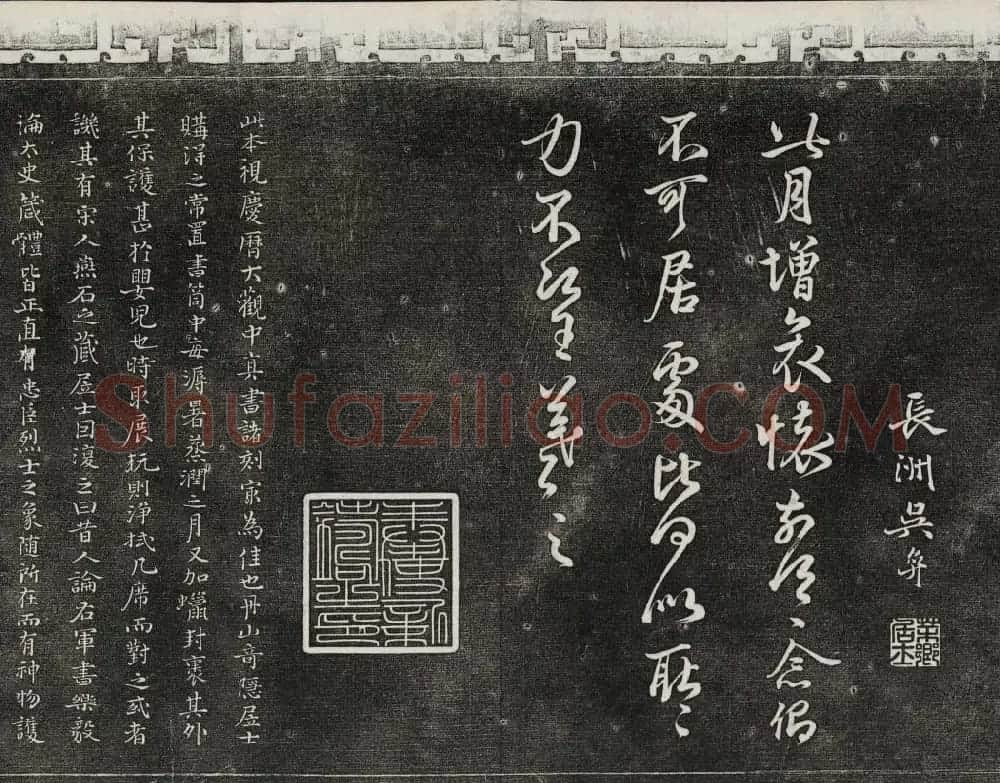 長洲吳奕
茶鄉居士
此月增哀懷前念
不可居處比何似耿〻
力不次王羲之
此本視慶曆大觀中真書諸刻寔為佳也丹山奇隱居士
購得之常置書笥中每溽暑蒸潤之月又加蠟封裹其外
其保護甚於嬰兒也時取展玩則淨拭几席而對之或者
譏其有宋人燕石之藏居士因復之曰昔人論右軍書樂毅
論太史箴體皆正直有忠臣烈士之象随所在而有神物護
Shufaziliao.COM